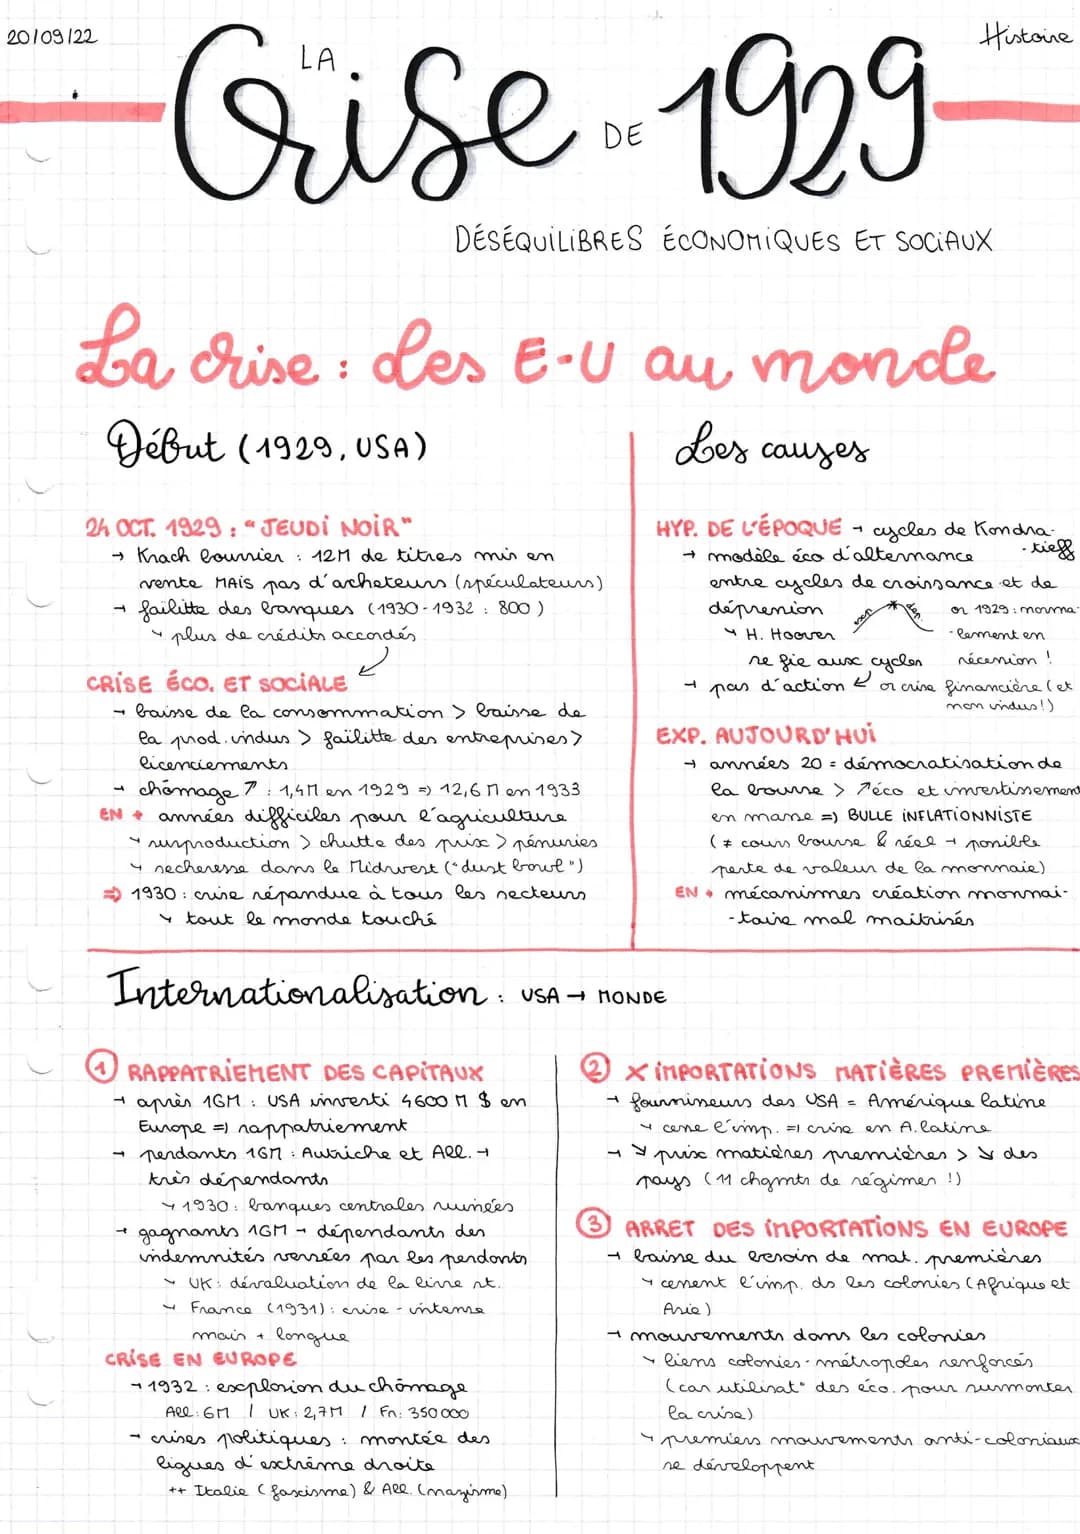 20/09/22
Histoire
LA Crise DE 1929
DÉSÉQUILIBRES ÉCONOMIQUES ET SOCIAUX
La crise : des E-U au monde
Début (1929, USA)
24 OCT. 1929 : "JEUDI NOIR"
→ Krach boursier : 12M de titres mis en
vente MAIS pas d'acheteurs (spéculateurs)
→ faillitte des banques (1930-1932 : 800)
↳ plus de crédits accordés
CRISE ÉCO. ET SOCIALE
→ baisse de la consommation > baisse de
la prod. indus > faillitte des entreprises >
licenciements
→ chômage ↗ : 1,4M en 1929 => 12,6 M en 1933
EN + années difficiles pour l'agriculture
↳ surproduction > chutte des prix > pénuries
↳ secheresse dans le Midwest ("dust bowl")
⇒ 1930 : crise répandue à tous les secteurs
↳ tout le monde touché
Les causes
HYP. DE L'ÉPOQUE → cycles de Kondra-
-tieff
→ modèle éco d'alternance
entre cycles de croissance et de
dépression
or 1929 : norma-
↳ H. Hoover
-lement en
se fie aux cycles
récession !
→ pas d'action
or crise financière (et
non indus!)
EXP. AUJOURD'HUI
→ années 20 = démocratisation de
la bourse > ↗éco et investissement
en masse => BULLE INFLATIONNISTE
(≠ cours bourse & réel → possible
perte de valeur de la monnaie)
EN + mécanismes création monnai-
-taire mal maitrisés
Internationalisation : USA → MONDE
① RAPPATRIEMENT DES CAPITAUX
→ après 1GM : USA investi 4600 M $ en
Europe => rappatriement
→ perdants 1GM : Autriche et All. →
très dépendants
↳ 1930 : banques centrales ruinées
→ gagnants 1GM → dépendants des
indemnités versées par les perdants
↳ UK : dévaluation de la livre st.
↳ France (1931) : crise - intense
mais + longue
CRISE EN EUROPE
→ 1932 : explosion du chômage
All : 6M / UK : 2,7M / Fr : 350 000
→ crises politiques : montée des
ligues d'extrême droite
++ Italie (fascisme) & All. (nazisme)
② X IMPORTATIONS MATIÈRES PREMIÈRES
→ fournisseurs des USA = Amérique latine
↳ cesse l'imp. => crise en A. latine
→ ↘ prix matières premières > ↘ des
pays (11 chgmts de régimes !)
③ ARRET DES IMPORTATIONS EN EUROPE
→ baisse du besoin de mat. premières
↳ cessent l'imp. ds les colonies (Afrique et
Asie)
→ mouvements dans les colonies
↳ liens colonies-métropoles renforcés
(car utilisat° des éco. pour surmonter
la crise)
↳ premiers mouvements anti-coloniaux
se développent